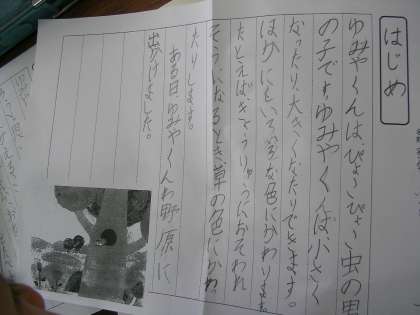 はじめ
ゆみやくんは、ぴょこぴょこ虫の男
の子です。ゆみやくんは小さく
なったり、大きくなったりできます。
ほかにも、いろいろな色にかわります。
たとえばきょうりゅうにおそわれ
そうになるとき草の色にかわっ
たりします。
ある日ゆみやくんわ野原に
出かけました。